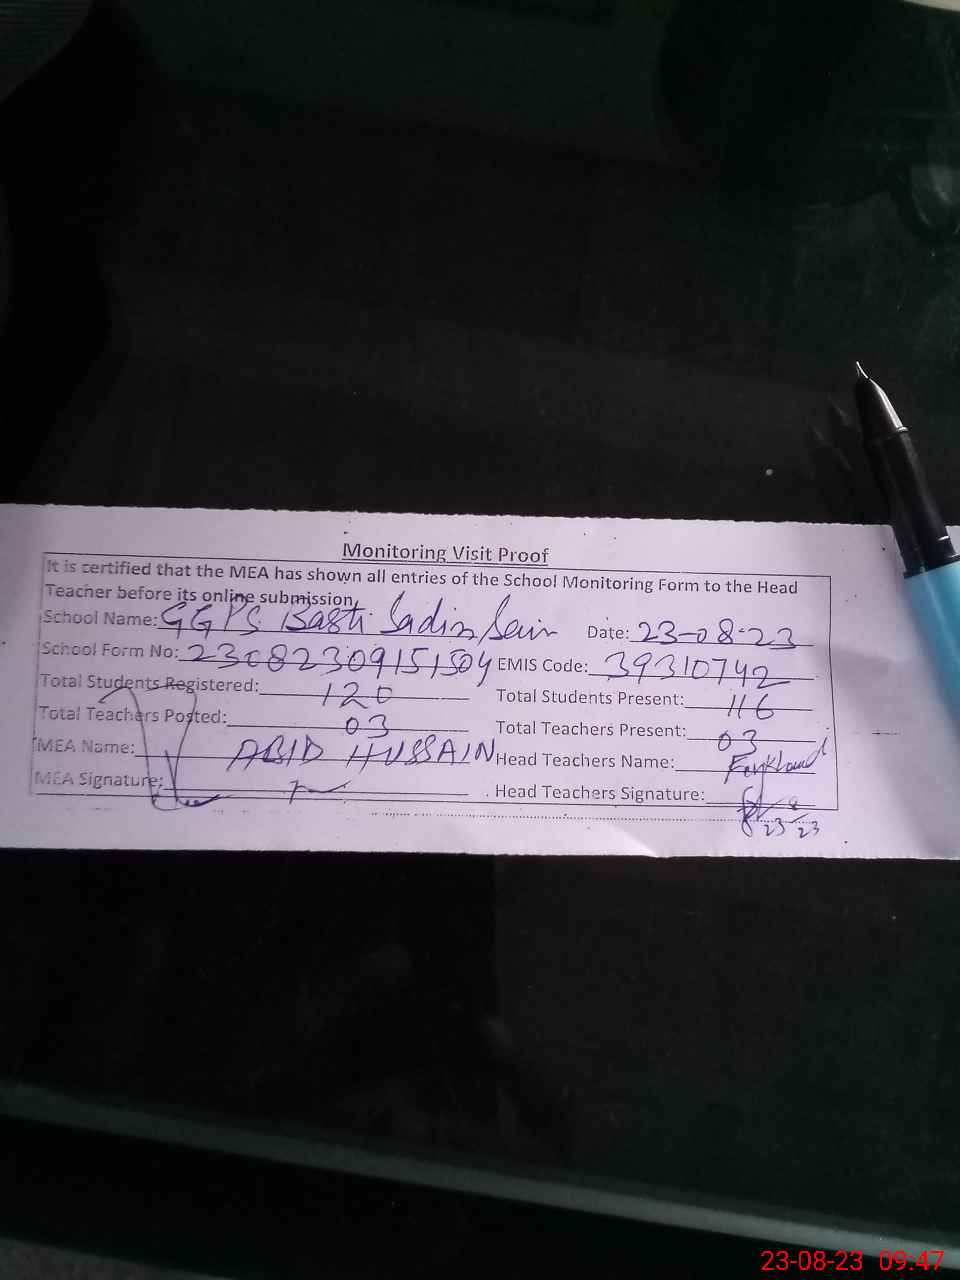 Monitoring Visit Proof
It is certified that the MEA has shown all entries of the School Monitoring Form to the Head
Teacher before its online submission.
School Name: GGPS Basti Date: 23-08-23
School Form No: 23082309151504 EMIS Code: 39310742
Total Students Registered: 120 Total Students Present: 116
Total Teachers Posted: 03 Total Teachers Present: 03
MEA Name: ABID HUSSAIN Head Teachers Name:
MEA Signature: Head Teachers Signature:
23 8 23
23-08-23 09:47